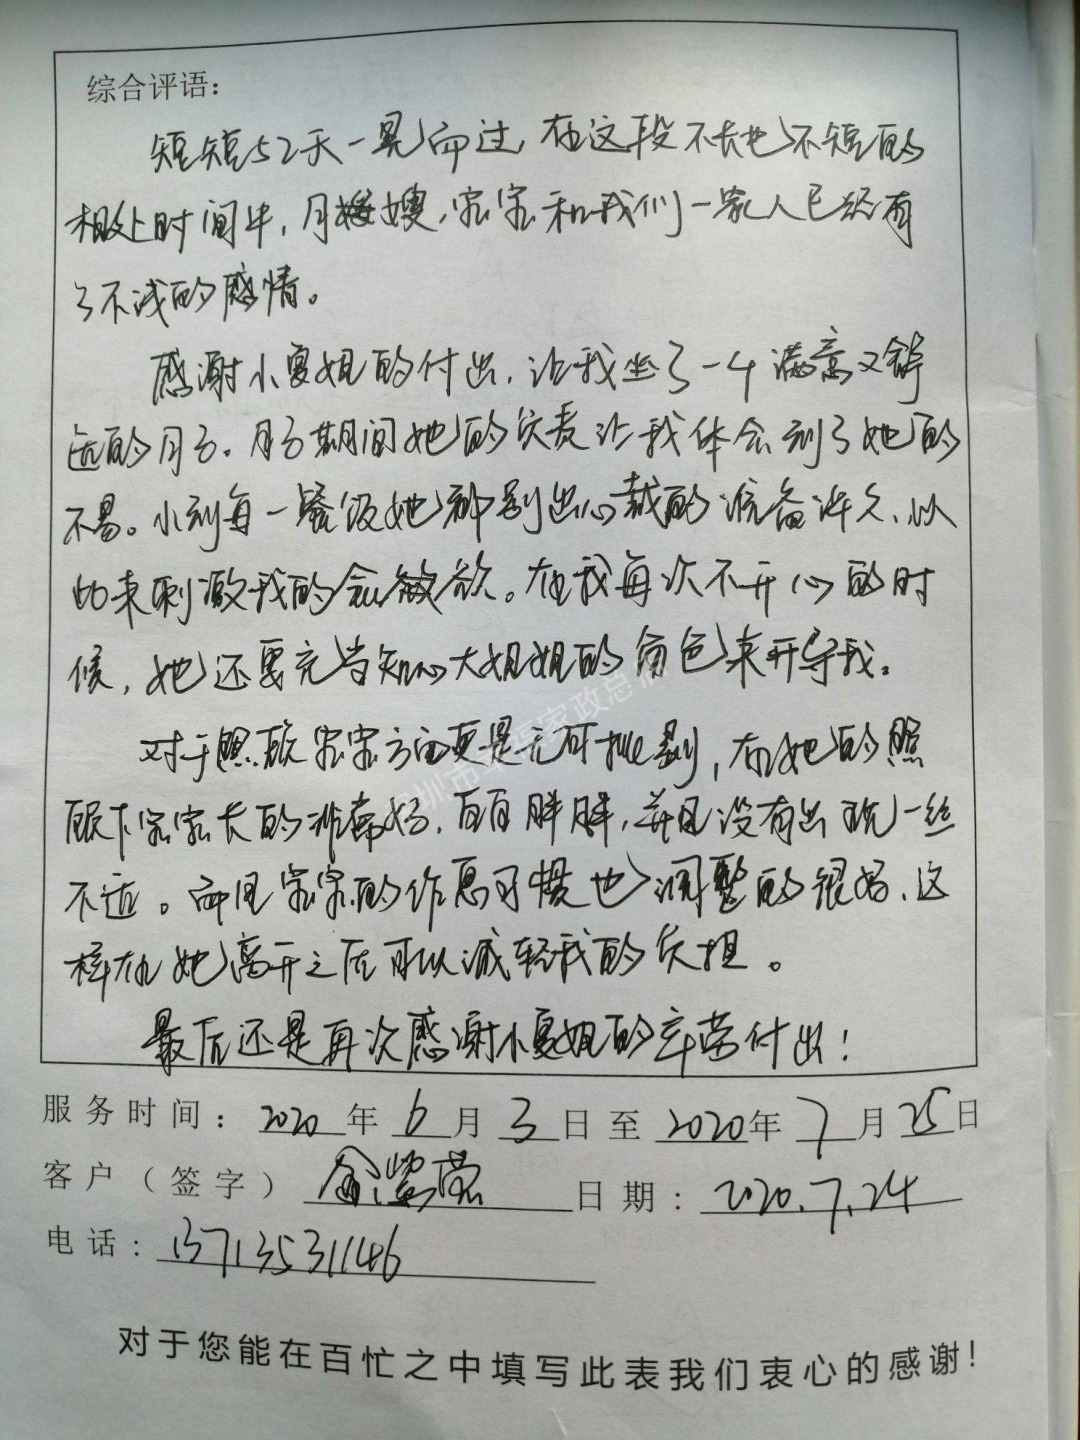 综合评语：
短短52天一晃而过，在这段不长也不短的
相处时间中，月嫂，家家和我们一家人已经有
了不浅的感情。
感谢小夏姐的付出，让我坐了一个满意又舒
适的月子。月子期间她的负责让我体会到了她的
不易。小到每一餐饭她都别出心裁的准备许久，以
此来刺激我的食欲。在我每次不开心的时
候，她还要充当知心大姐姐的角色来开导我。
对于照顾家家方面更是无可挑剔，在她的照
顾下家家长的非常好，白白胖胖，并且没有出现一丝
不适。而且家家的作息习惯也调整的很好，这
样在她离开之后可以减轻我的负担。
最后还是再次感谢小夏姐的辛劳付出！
服务时间：2020年6月3日至2020年7月25日
客户（签字） 日期：2020.7.24
电话：13713531146
对于您能在百忙之中填写此表我们衷心的感谢！